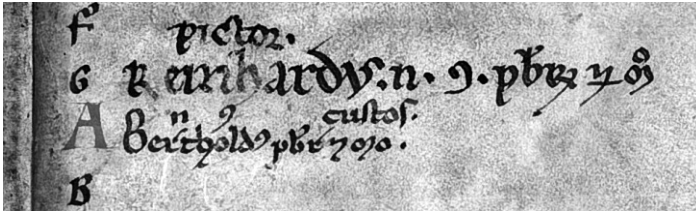 F pictor.
G Reinhardus. n. 9. pbr 7 mo
n 9 custos.
A Bertholdus pbr 7 mo.
B